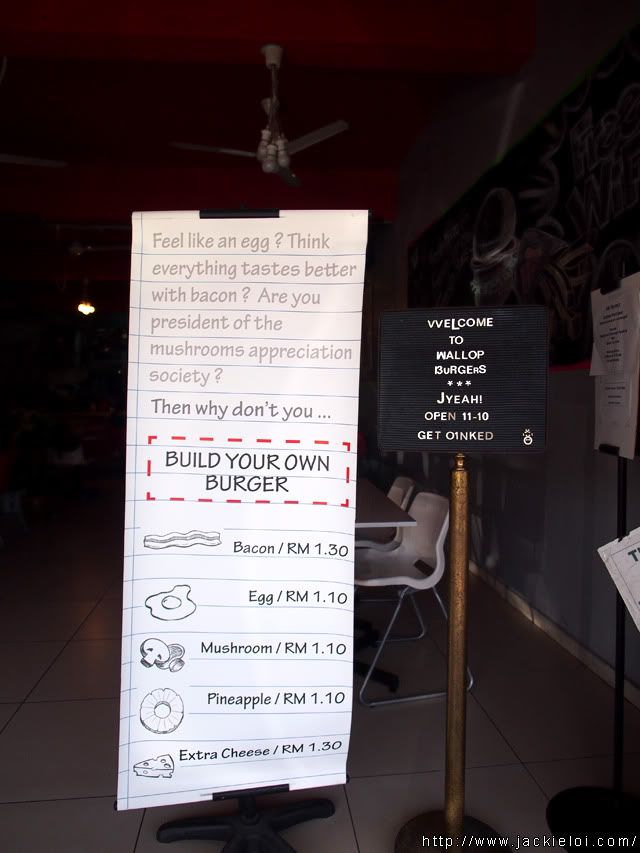 Feel like an egg ? Think
everything tastes better
with bacon ? Are you
president of the
mushrooms appreciation
society ?
Then why don't you ...
BUILD YOUR OWN
BURGER
Bacon / RM 1.30
Egg / RM 1.10
Mushroom / RM 1.10
Pineapple / RM 1.10
Extra Cheese / RM 1.30
VVELCOME
TO
WALLOP
BURGERS
***
JYEAH!
OPEN 11-10
GET O1NKED
http://www.jackieloi.com